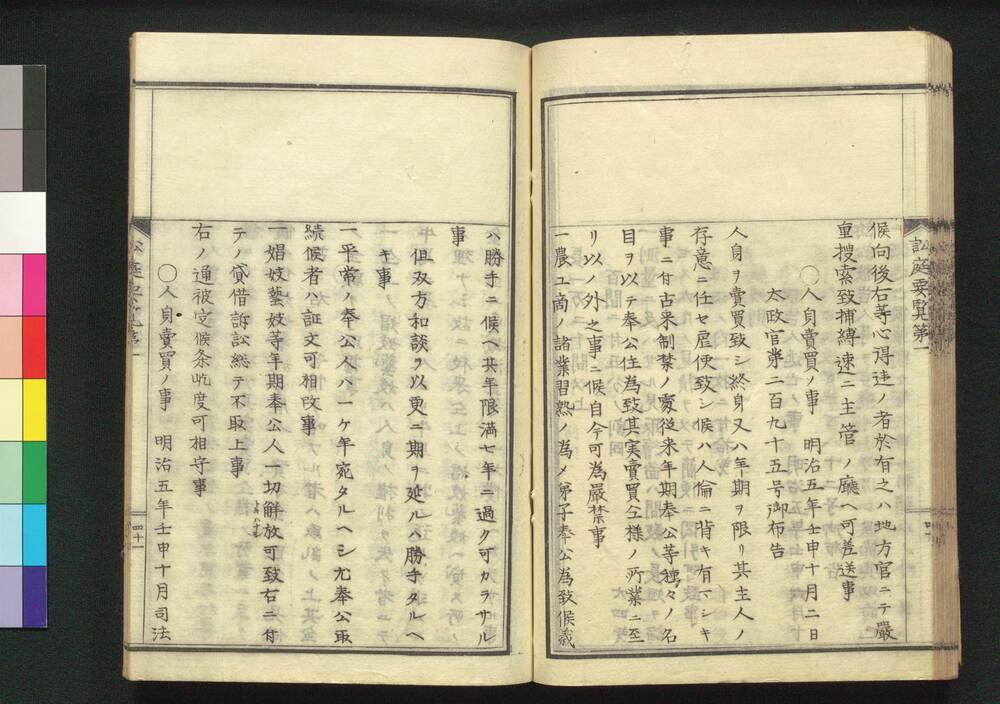 訟庭要覧第一
候向後右等心得违ノ者於有之ハ地方官ニテ嚴
重捜索致捕縛速ニ主管ノ廳ヘ可差送事
〇人身賣買ノ事 明治五年壬申十月二日
太政官第二百九十五号御布告
人身ヲ賣買致シ終身又ハ年期ヲ限リ其主人ノ
存意ニ任セ虐使致シ候ハ人倫ニ背キ有マシキ
事ニ付古来制禁ノ處従来年期奉公等種々ノ名
目ヲ以テ奉公住為致其実賣買仝様ノ所業ニ至
リ以ノ外之事ニ候自今可為嚴禁事
一農工商ノ諸業習熟ノ為メ弟子奉公為致候儀
ハ勝手ニ候ヘ共年限満七年ニ過ク可カラサル
事
但双方和談ヲ以更ニ期ヲ延ルハ勝手タルヘ
キ事
一平常ノ奉公人ハ一ヶ年宛タルヘシ尤奉公取
続候者ハ証文可相改事
一娼妓藝妓等年期奉公人一切解放可致右ニ付
テノ貸借訴訟総テ不取上事
右ノ通被定候条屹度可相守事
〇人身賣買ノ事 明治五年壬申十月司法
訟庭要覧第一
四十一